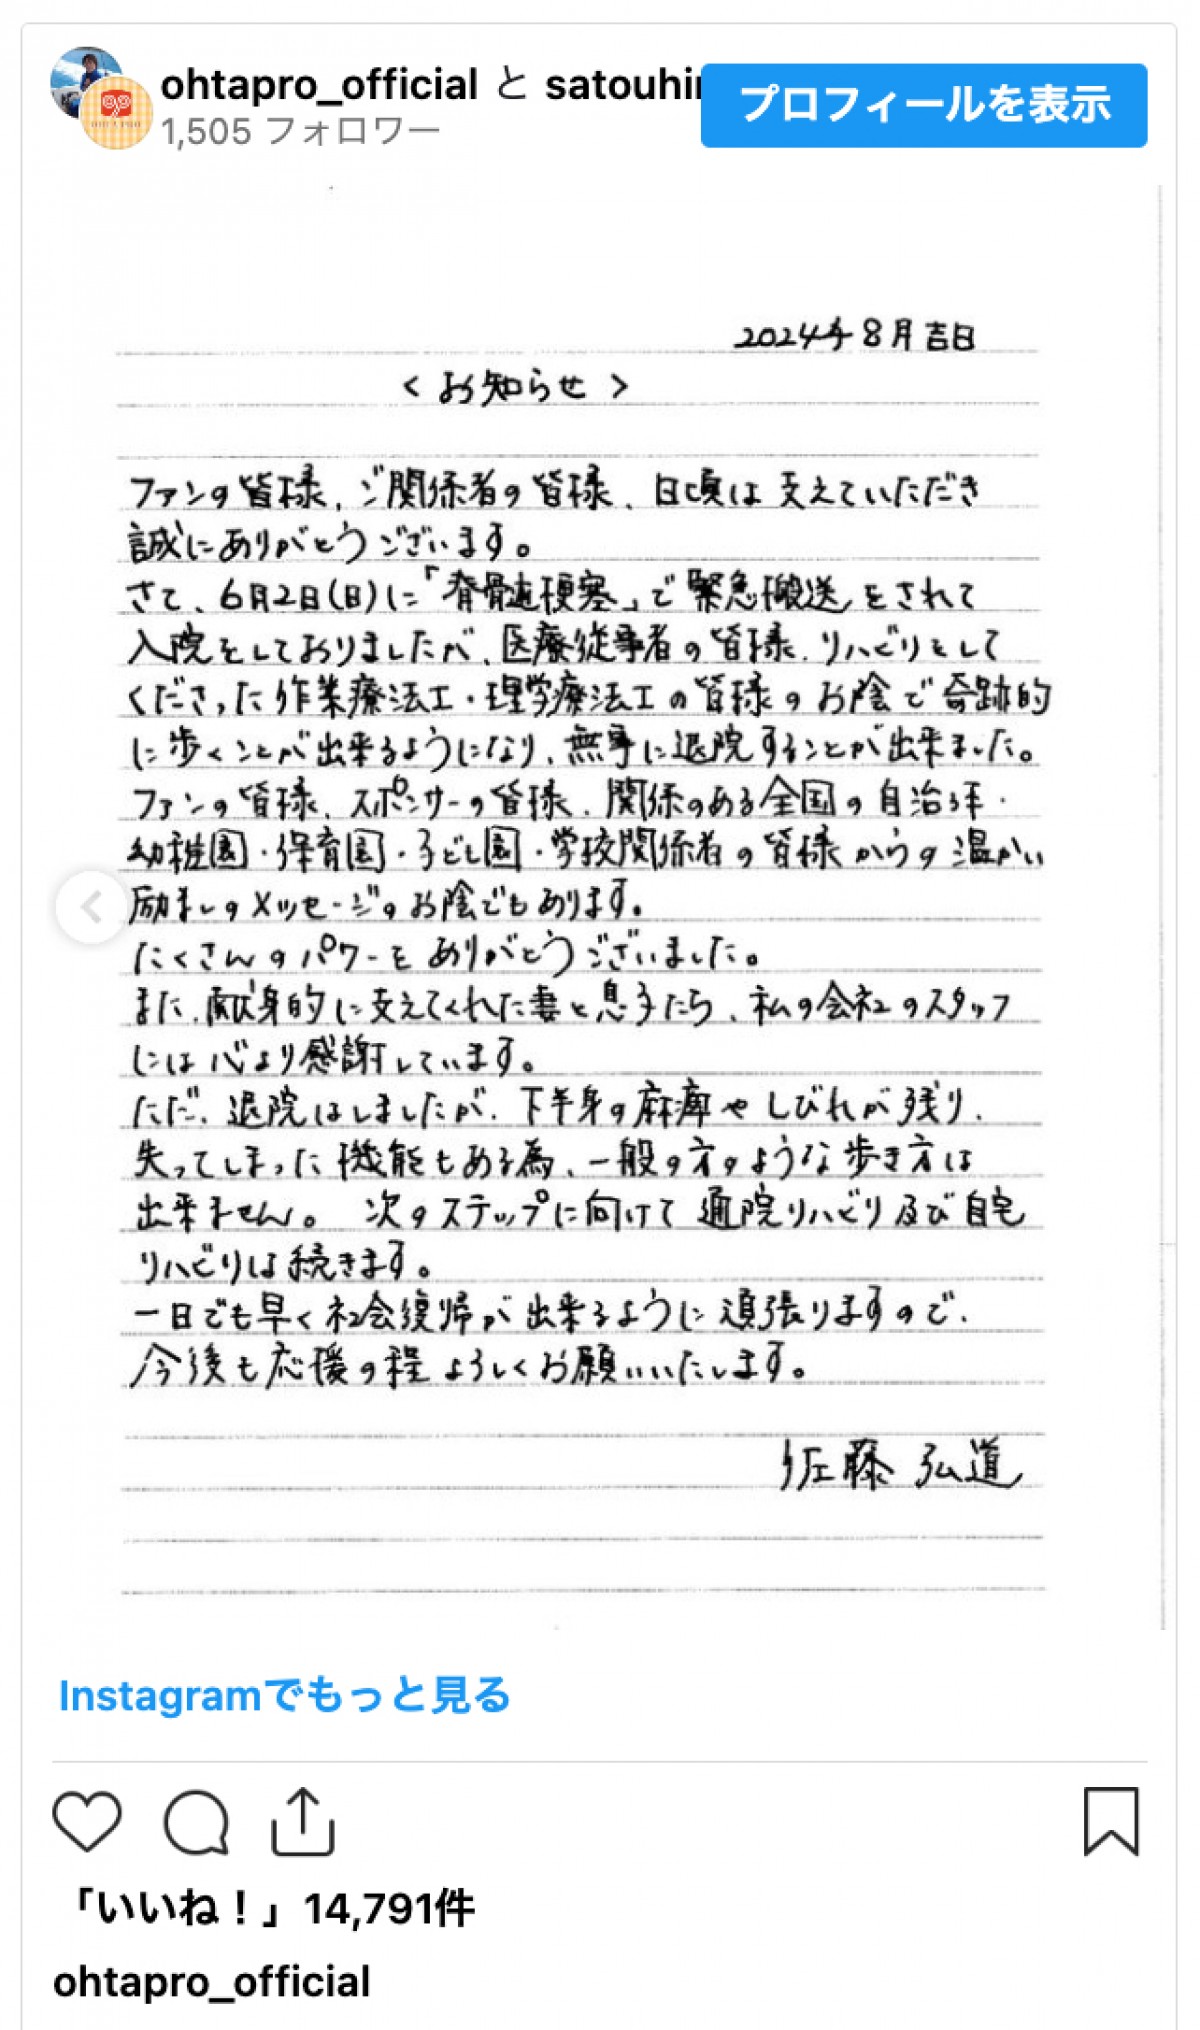 ohtapro_official と satouhir
プロフィールを表示
1,505 フォロワー
2024年8月吉日
<お知らせ>
ファンの皆様、ご関係者の皆様、日頃は支えていただき
誠にありがとうございます。
さて、6月2日(日)に「脊髄梗塞」で緊急搬送をされて
入院をしておりましたが、医療従事者の皆様、リハビリをして
くださった作業療法工・理学療法工の皆様のお陰で奇跡的
に歩くことが出来るようになり、無事に退院することが出来ました。
ファンの皆様、スポンサーの皆様、関係のある全国の自治体・
幼稚園・保育園・子ども園・学校関係者の皆様からの温かい
励ましのメッセージのお陰でもあります。
たくさんのパワーをありがとうございました。
また、献身的に支えてくれた妻と息子たち、私の会社のスタッフ
には心より感謝しています。
ただ、退院はしましたが、下半身の麻痺やしびれが残り、
失ってしまった機能もある為、一般の方のような歩き方は
出来ません。 次のステップに向けて通院リハビリ及び自宅
リハビリは続きます。
一日でも早く社会復帰が出来るように頑張りますので、
今後も応援の程よろしくお願いいたします。
佐藤 弘道
Instagramでもっと見る
「いいね！」14,791件
ohtapro_official